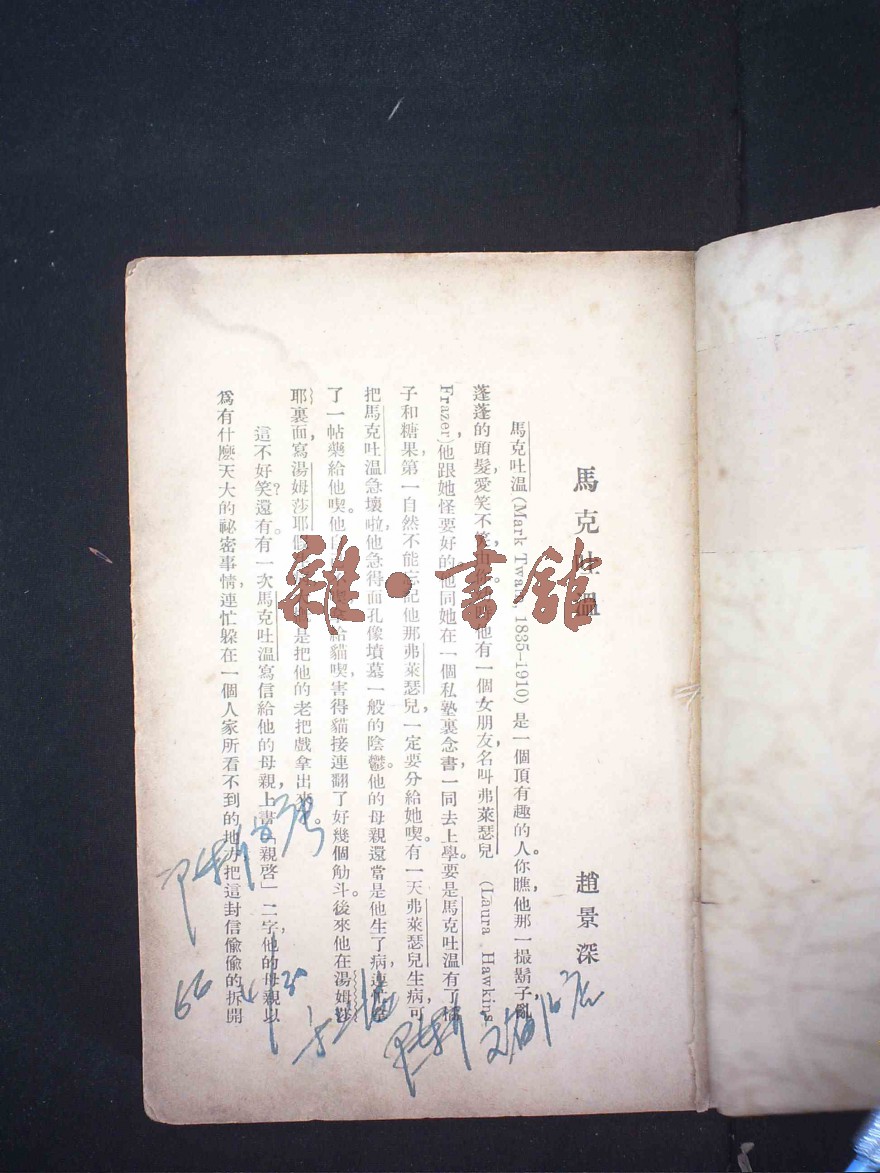 馬克吐溫
趙景深
馬克吐溫(Mark Twain, 1835–1910)是一個頂有趣的人。你瞧,他那一撮鬍子,亂
蓬蓬的頭髮,愛笑不 他有一個女朋友,名叫弗萊瑟兒 (Laura Hawkins
Frazer),他跟她怪要好的。他同她在一個私塾裏念書,一同去上學。要是馬克吐溫有了橘
子和糖果,第一自然不能忘記他那弗萊瑟兒,一定要分給她喫。有一天弗萊瑟兒生病,可
把馬克吐溫急壞啦,他急得面孔像墳墓一般的陰鬱。他的母親還當是他生了病,連忙拿
了一帖藥給他喫。他 給貓喫,害得貓接連翻了好幾個觔斗。後來他在湯姆莎
耶裏面,寫湯姆莎耶 是把他的老把戲拿出來。
這不好笑?還有。有一次馬克吐溫寫信給他的母親,上書「親啓」二字,他的母親以
爲有什麽天大的祕密事情,連忙躲在一個人家所看不到的地方把這封信偷偷的拆開
雜·書館